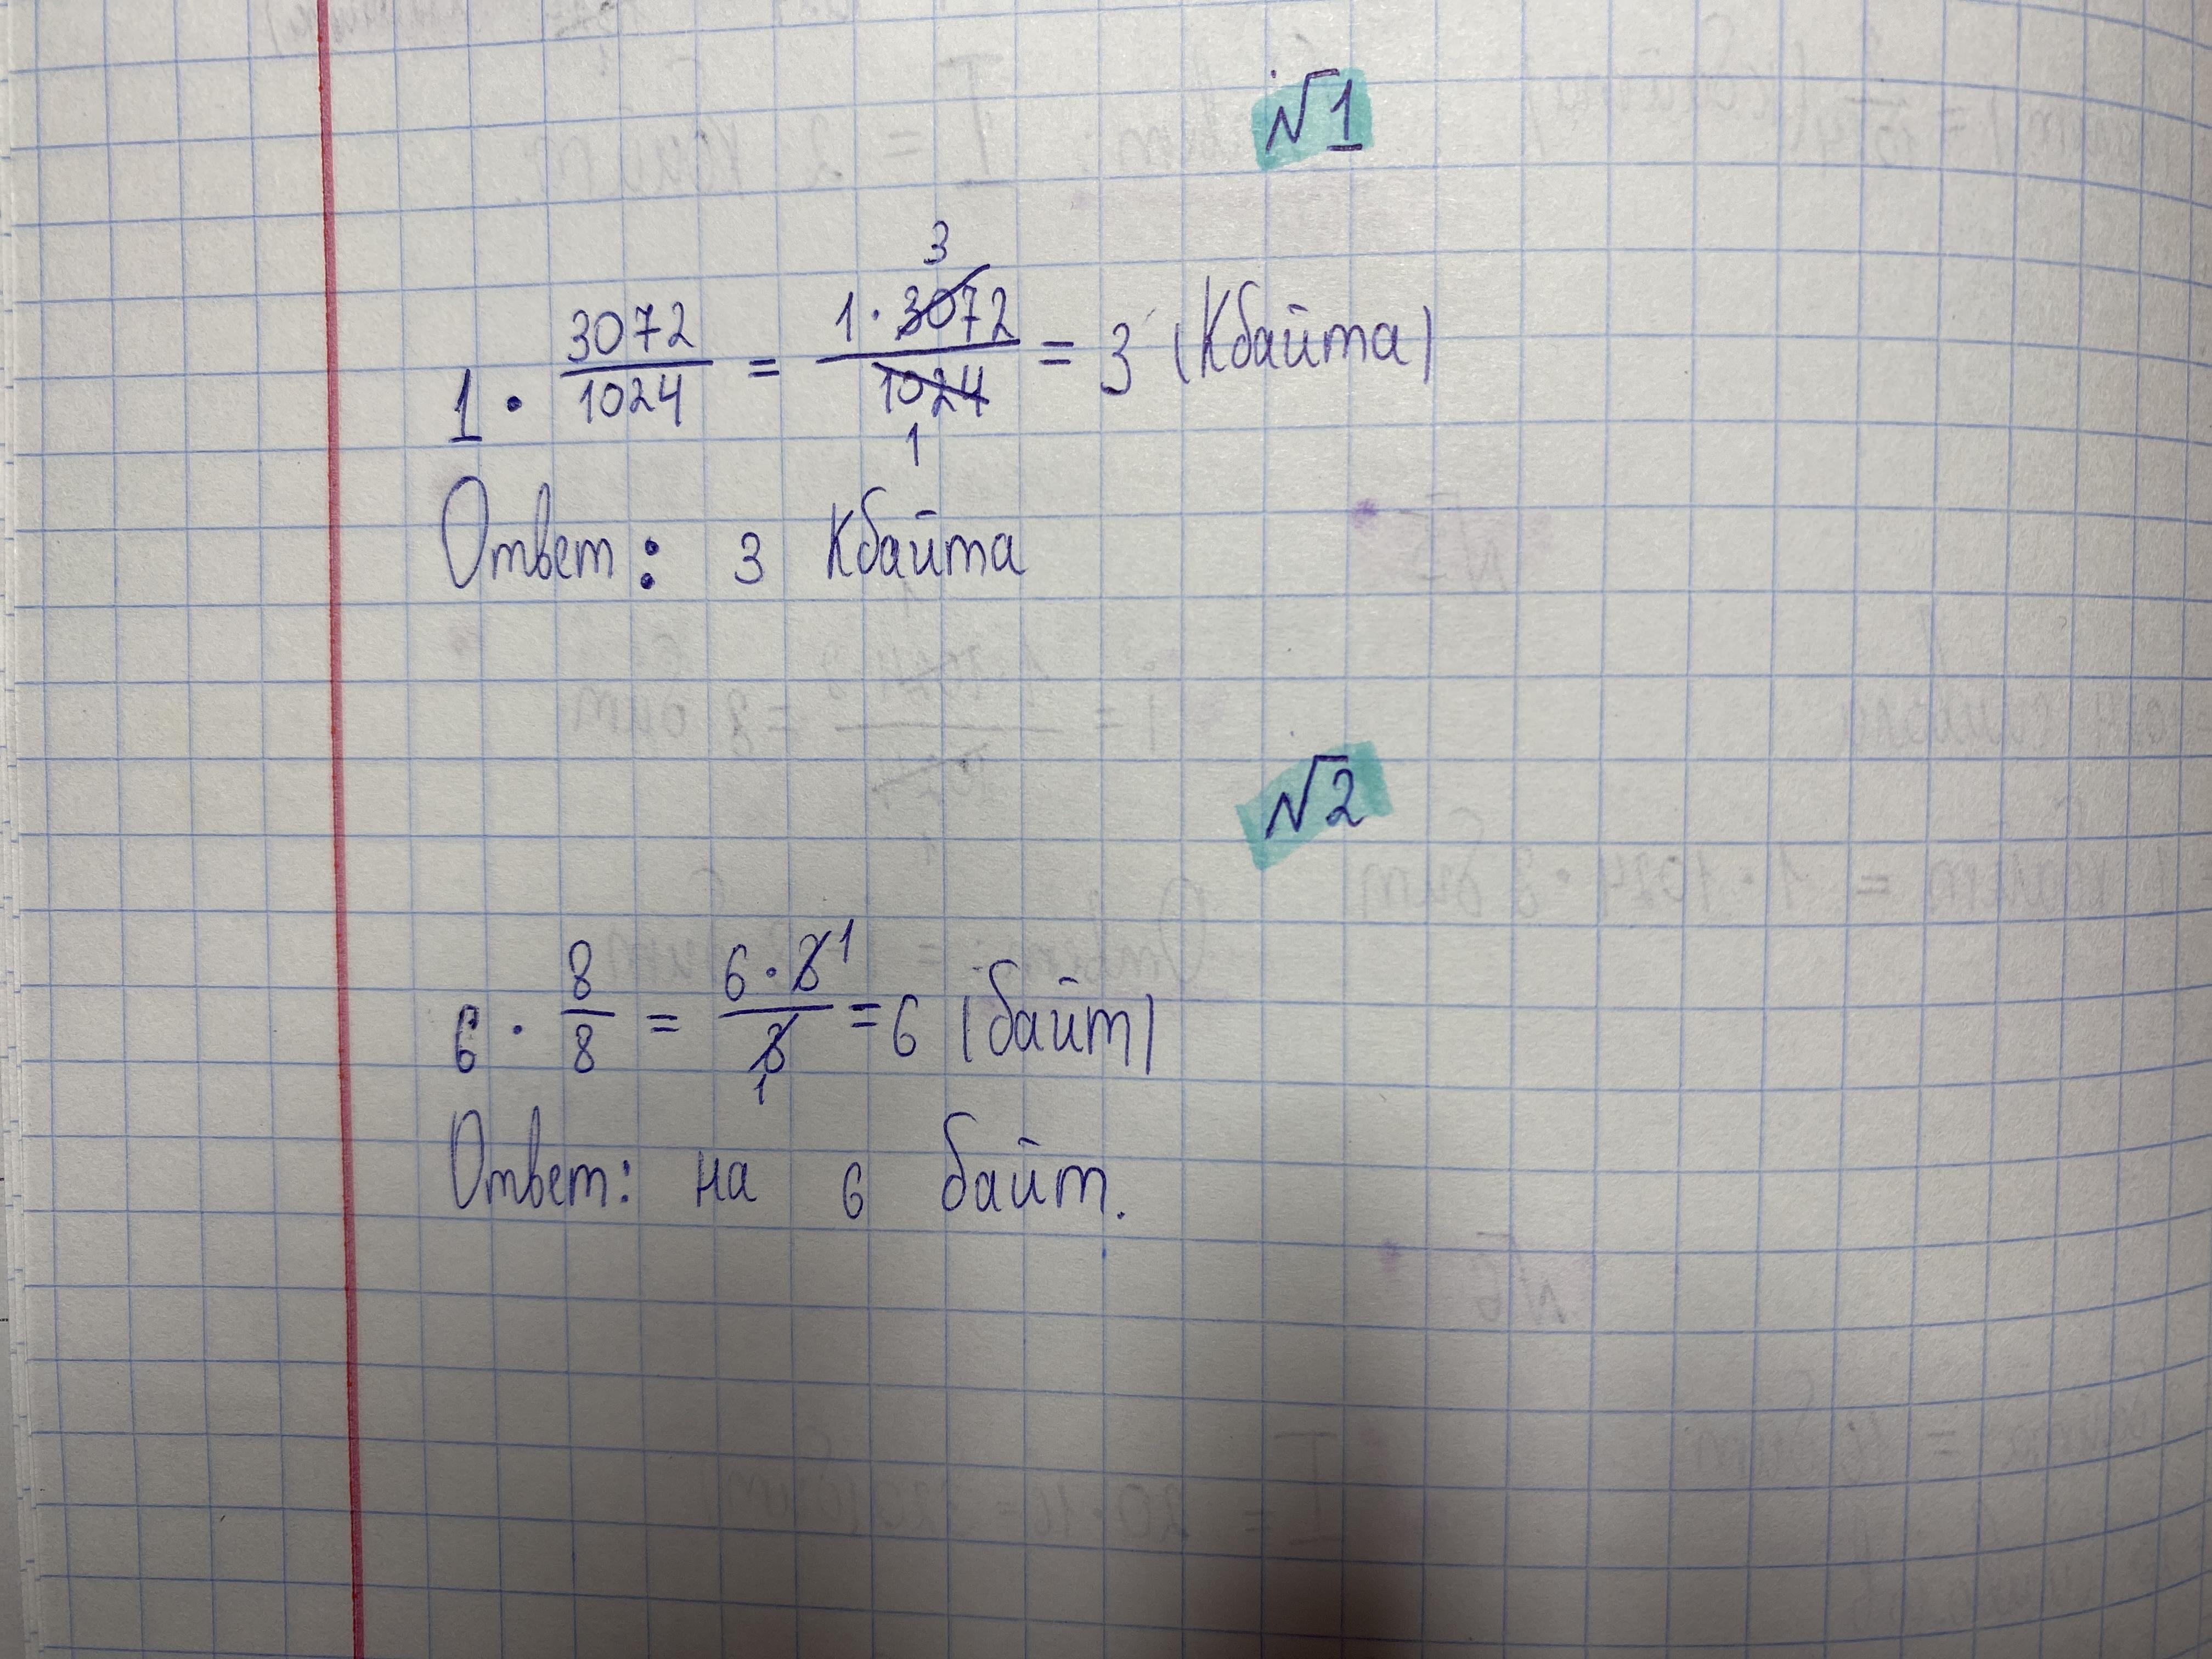 √1
1 · 3072/1024 = 1 · 3072/1024 = 3 (Кбайта)
3
1
Ответ: 3 Кбайта
√2
6 · 8/8 = 6 · 8/8 = 6 (байт)
1
1
Ответ: на 6 байт.